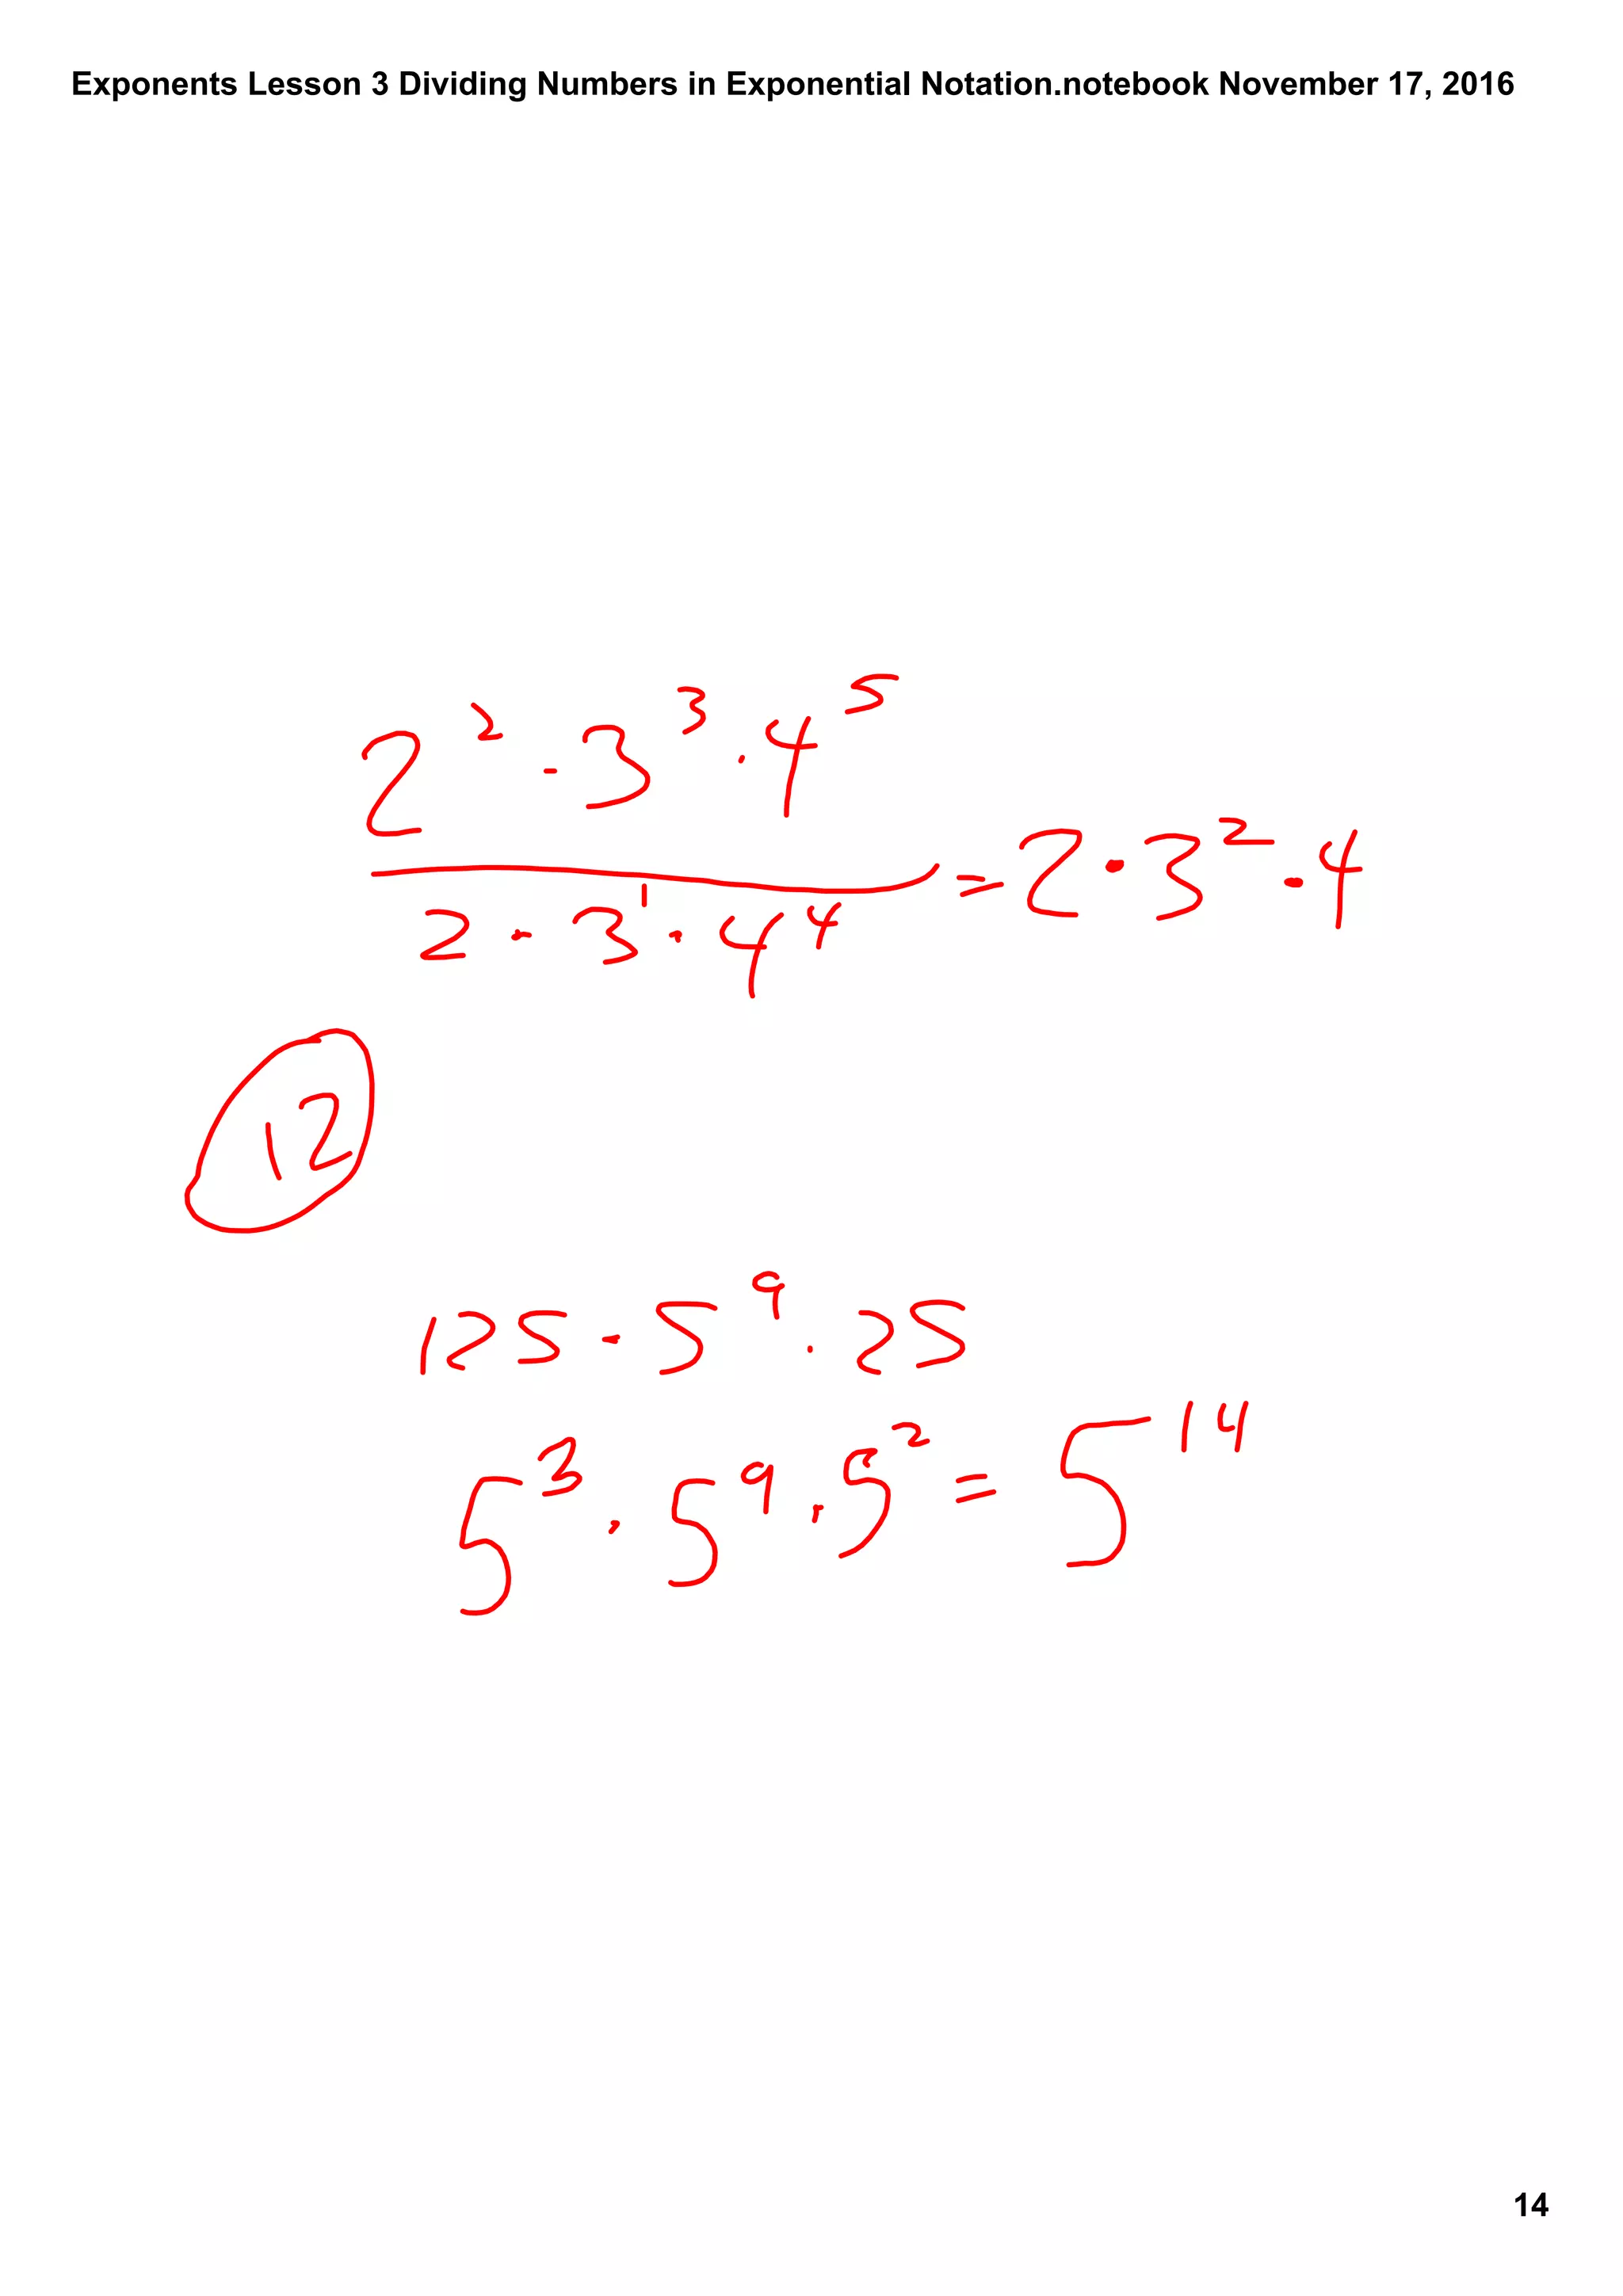 Exponents Lesson 3 Dividing Numbers in Exponential Notation.notebook November 17, 2016
2² · 3³ · 4⁵
2 · 3¹ · 4⁴
= 2 · 3² · 4
12
125 · 5⁹ · 25
5³ · 5⁹ · 5² = 5¹⁴
14